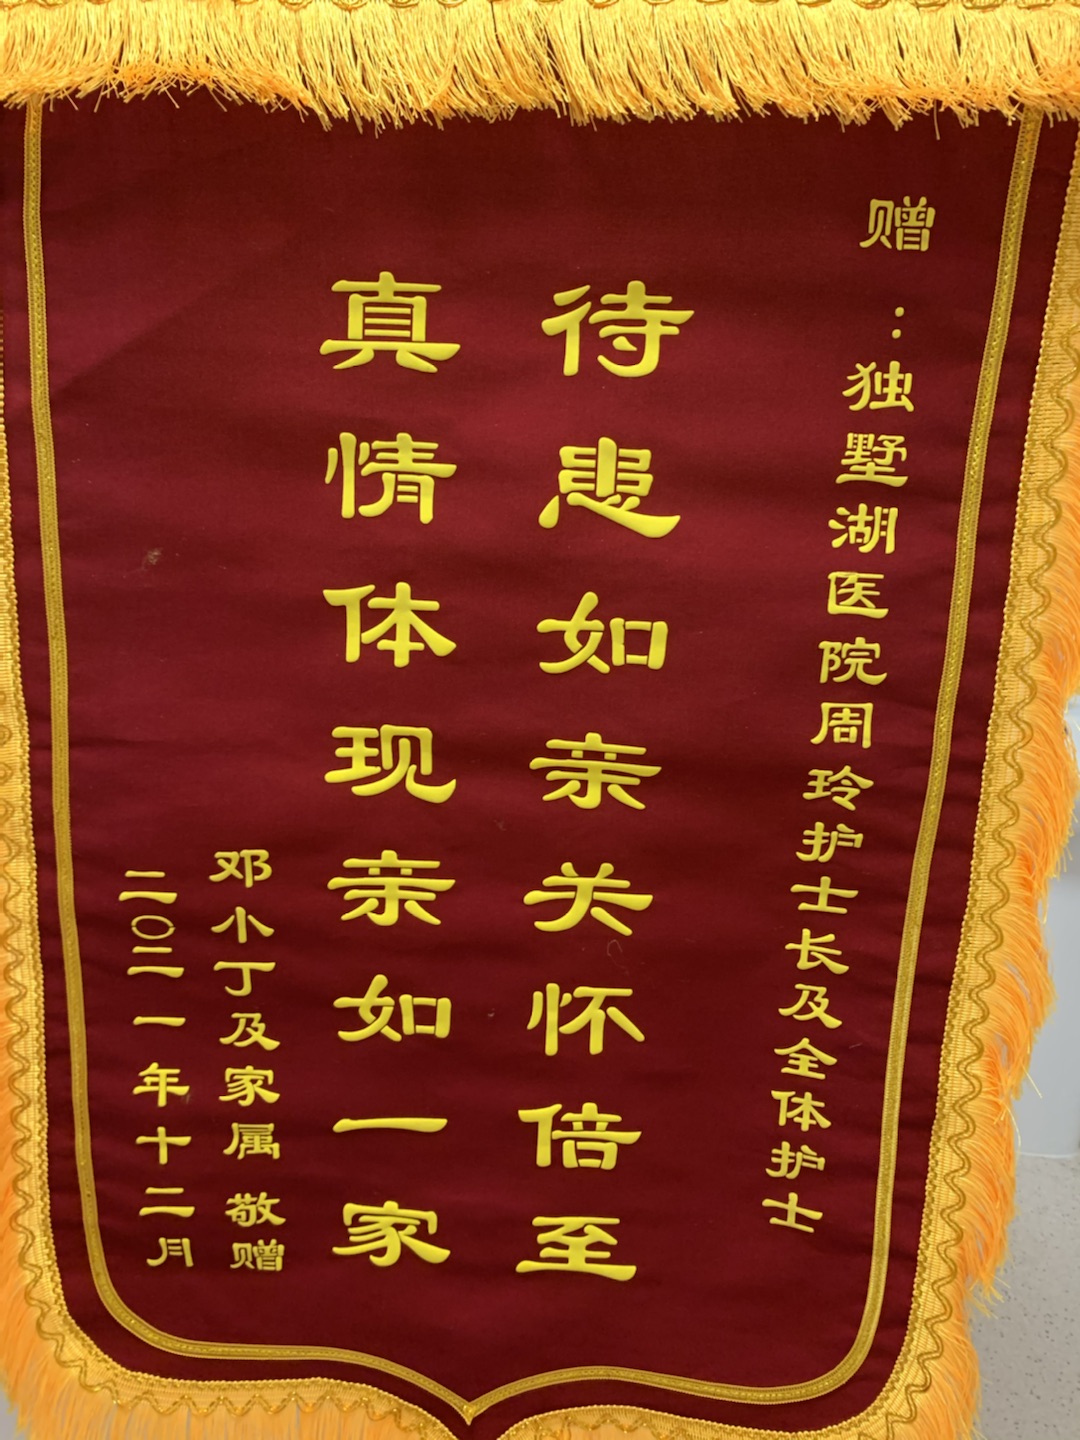 赠：独墅湖医院周玲护士长及全体护士
待患如亲关怀倍至
真情体现亲如一家
邓小丁及家属 敬赠
二〇二一年十二月